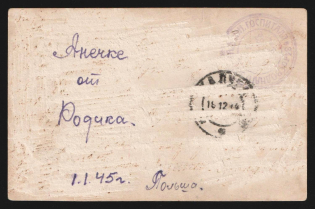 Анечке
от
Родика.
1.1.45г. Польша.
16 12 44